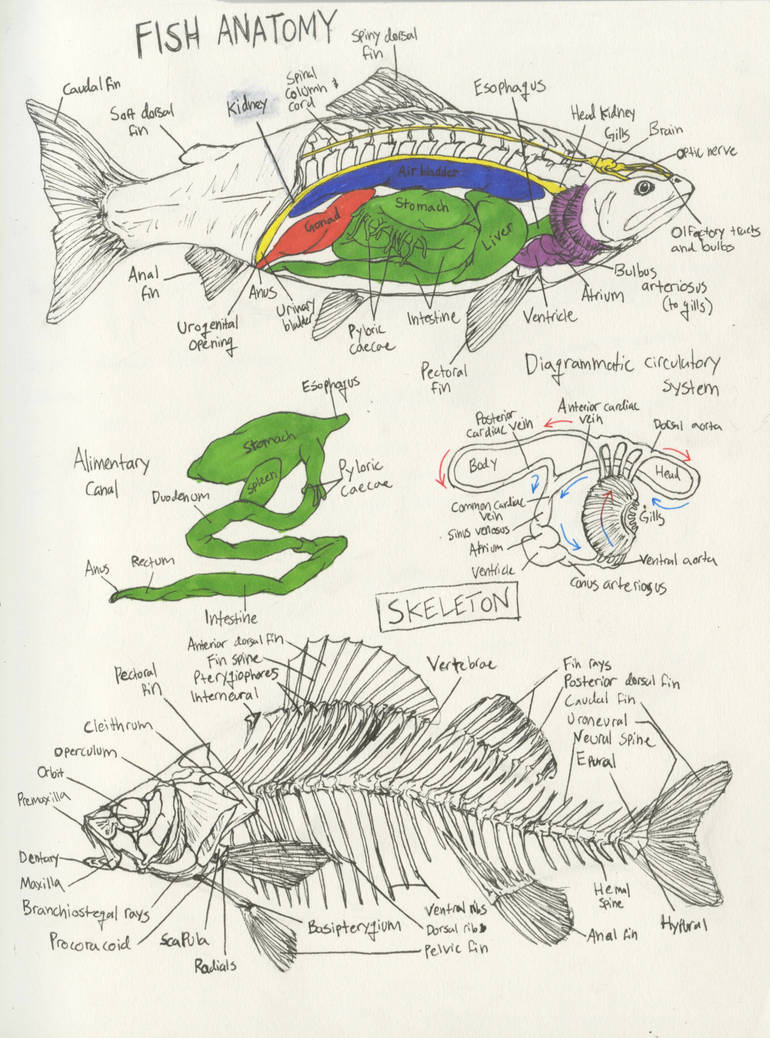 FISH ANATOMY
Spiny dorsal
fin
Caudal fin
Soft dorsal
fin
Kidney
Spinal
column &
cord
Esophagus
Head Kidney
Gills
Brain
Optic nerve
Air bladder
Gonad
Stomach
Liver
Olfactory tracts
and bulbs
Anal
fin
Anus
Urogenital
opening
Urinary
bladder
Pyloric
caecae
Intestine
Pectoral
fin
Ventricle
Atrium
Bulbus
arteriosus
(to gills)
Alimentary
Canal
Esophagus
Stomach
Spleen
Pyloric
Caecae
Duodenum
Anus
Rectum
Intestine
Diagrammatic circulatory
system
Posterior
cardiac vein
Anterior cardiac
vein
Dorsal aorta
Body
Head
Common cardiac
vein
Sinus venosus
Atrium
Ventricle
Gills
Ventral aorta
Conus arteriosus
SKELETON
Anterior dorsal fin
Fin spine
Pterygiophores
Interneural
Pectoral
fin
Cleithrum
Operculum
Orbit
Premaxilla
Dentary
Maxilla
Branchiostegal rays
Procoracoid
Scapula
Radials
Basipterygium
Vertebrae
Fin rays
Posterior dorsal fin
Caudal fin
Uroneural
Neural spine
Epural
Ventral ribs
Dorsal ribs
Pelvic fin
Hemal
spine
Anal fin
Hypural